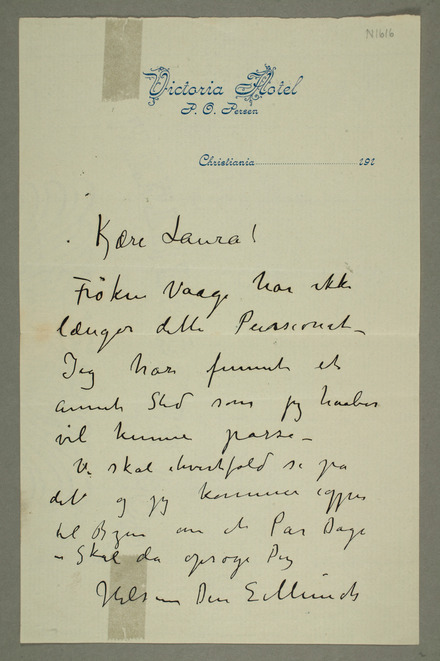 N1616
Victoria Hotel
P. O. Persen
Christiania 191
Kjære Laura!
Fröken Vaage har ikke
længer dette Pensionat –
Jeg har funnet et
annet Sted som jeg haaber
vil kunne passe –
Vi skal ihvertfald se på
det og jeg kommer igjen
til Byen om et Par Dage
– Skal da opsøge Dig
Hilsen Din E. Munch